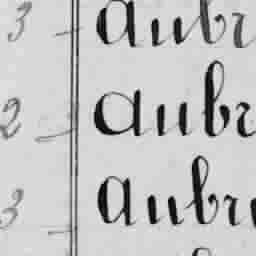 3 Aubr
2 Aubr
3 Aubr